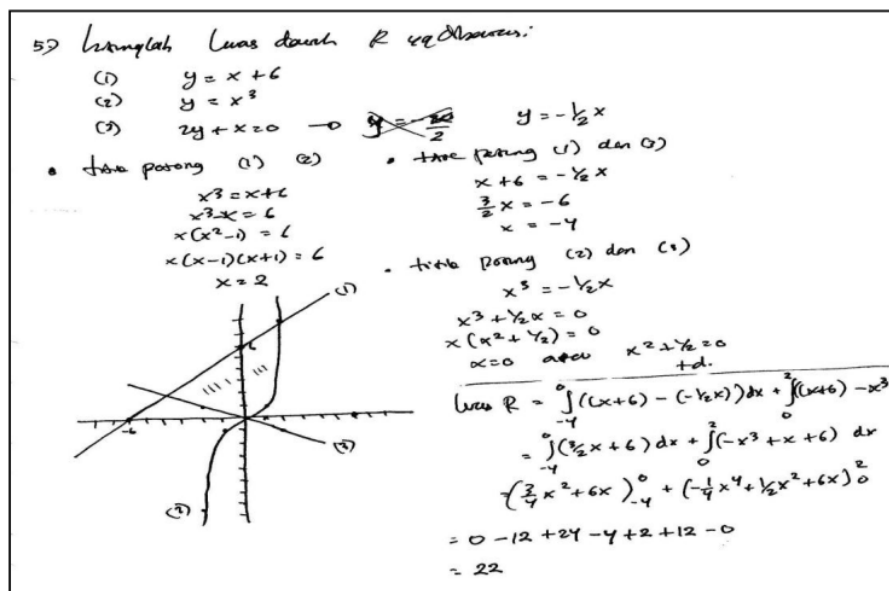 5) Hitunglah luas daerah R yg dibatasi:
(1) y = x + 6
(2) y = x³
(3) 2y + x = 0 → y = -½x
• titik potong (1) (2)
x³ = x + 6
x³ - x = 6
x(x² - 1) = 6
x(x-1)(x+1) = 6
x = 2
• titik potong (1) dan (3)
x + 6 = -½x
3/2 x = -6
x = -4
• titik potong (2) dan (3)
x³ = -½x
x³ + ½x = 0
x(x² + ½) = 0
x=0 atau x² + ½ = 0
t.d.
(1)
6
-6
(3)
(2)
Luas R = ∫₋₄⁰ ((x+6) - (-½x)) dx + ∫₀² ((x+6) - x³
= ∫₋₄⁰ (3/2 x + 6) dx + ∫₀² (-x³ + x + 6) dx
= (3/4 x² + 6x)₋₄⁰ + (-1/4 x⁴ + ½x² + 6x)₀²
= 0 - 12 + 24 - 4 + 2 + 12 - 0
= 22